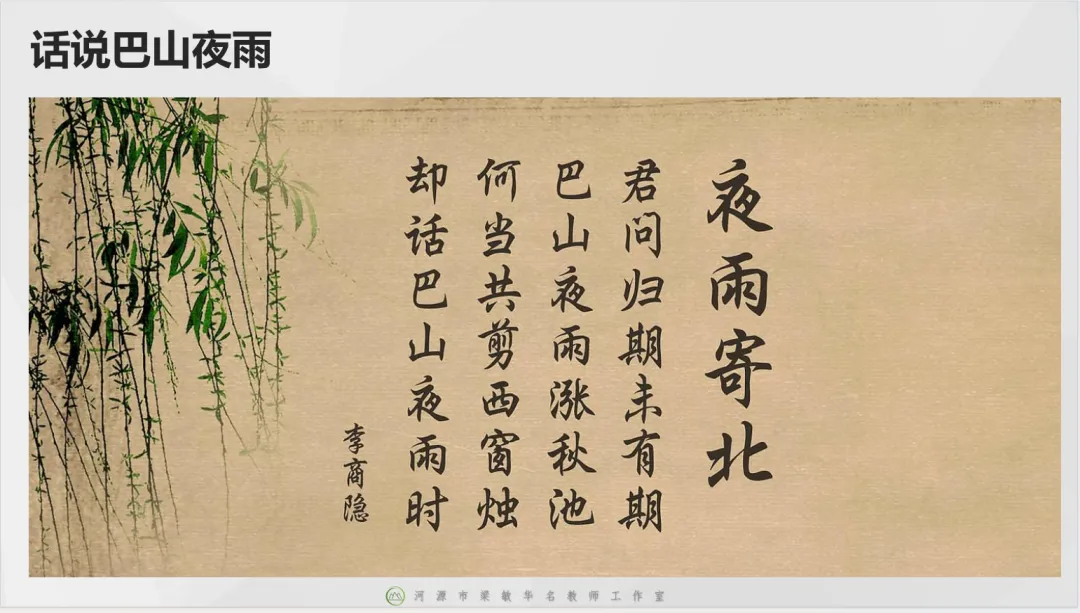 话说巴山夜雨
夜雨寄北
君问归期未有期
巴山夜雨涨秋池
何当共剪西窗烛
却话巴山夜雨时
李商隐
河源市梁敏华名教师工作室